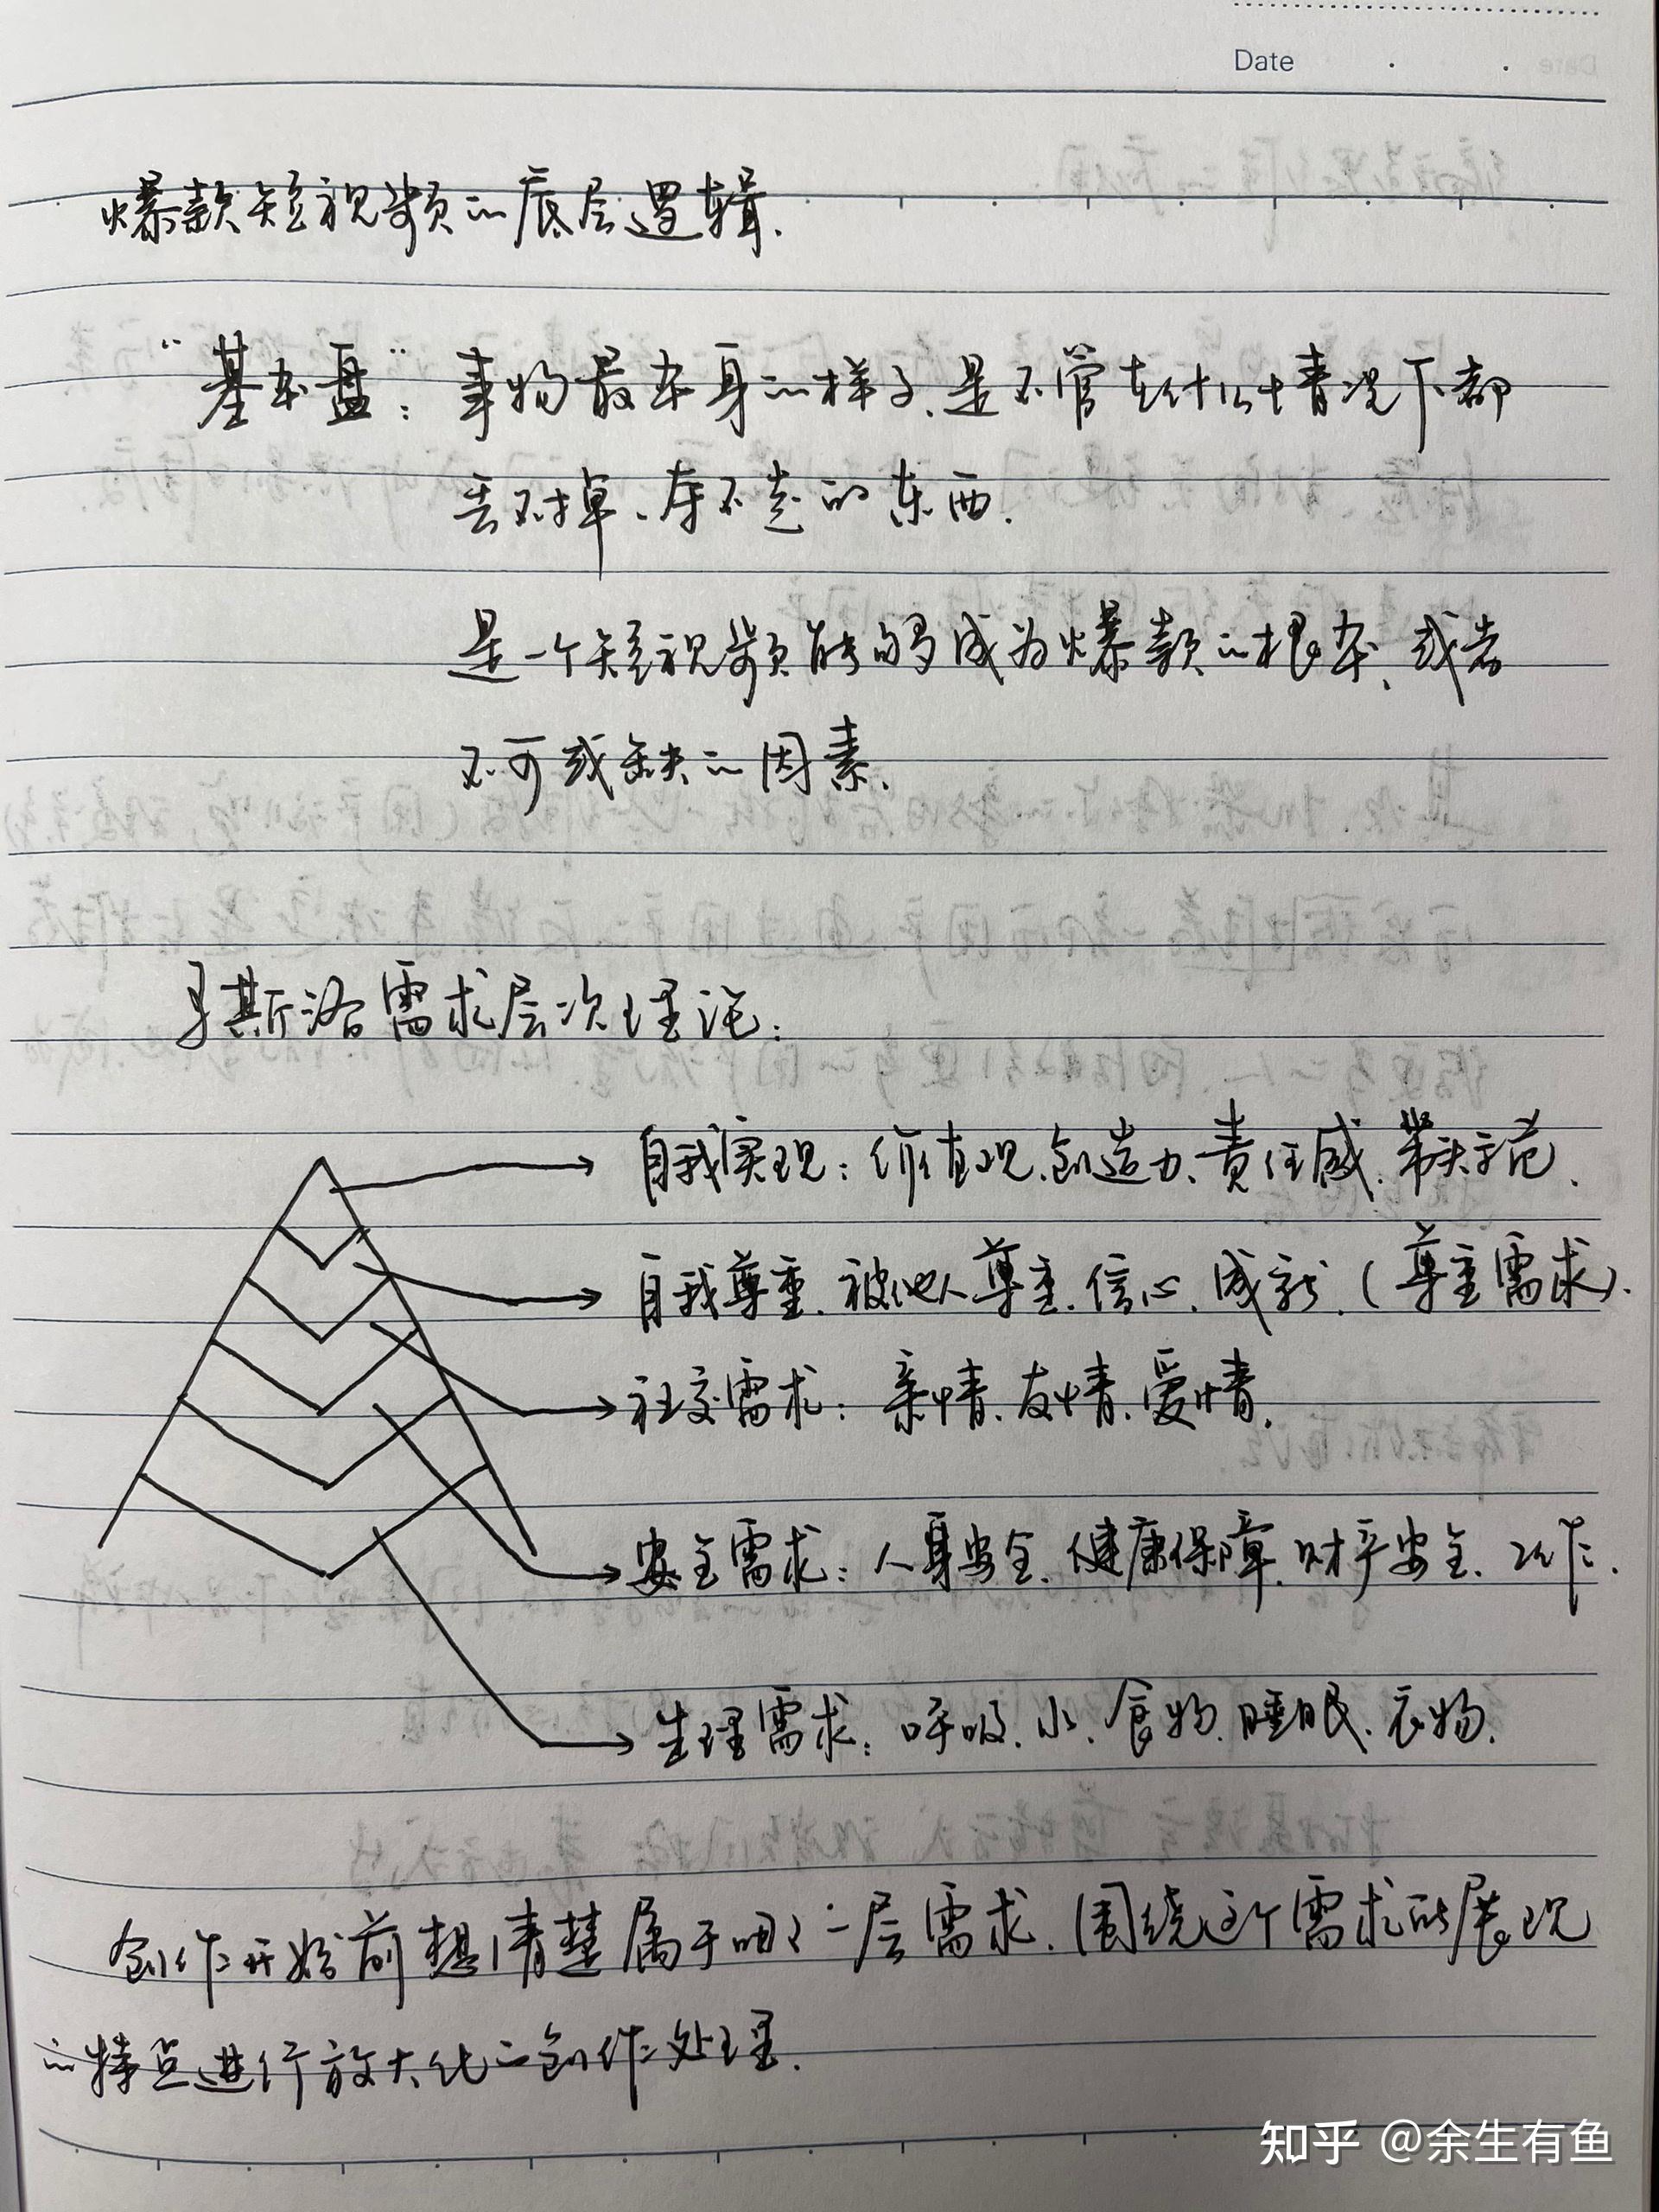 Date
爆款短视频的底层逻辑.
"基本盘": 事物最本身的样子、是不管在什么情况下都
丢不掉、夺不走的东西.
是一个短视频能够成为爆款的根本、或者
不可或缺的因素.
马斯洛需求层次理论:
自我实现: 价值观、创造力、责任感、
自我尊重、被他人尊重、信心、成就、(尊重需求).
社交需求: 亲情、友情、爱情.
安全需求: 人身安全、健康保障、财产安全、工作.
生理需求: 呼吸、水、食物、睡眠、衣物.
创作开始前想清楚属于哪一层需求、围绕这个需求所展现
的特点进行放大化的创作处理.
知乎 @余生有鱼